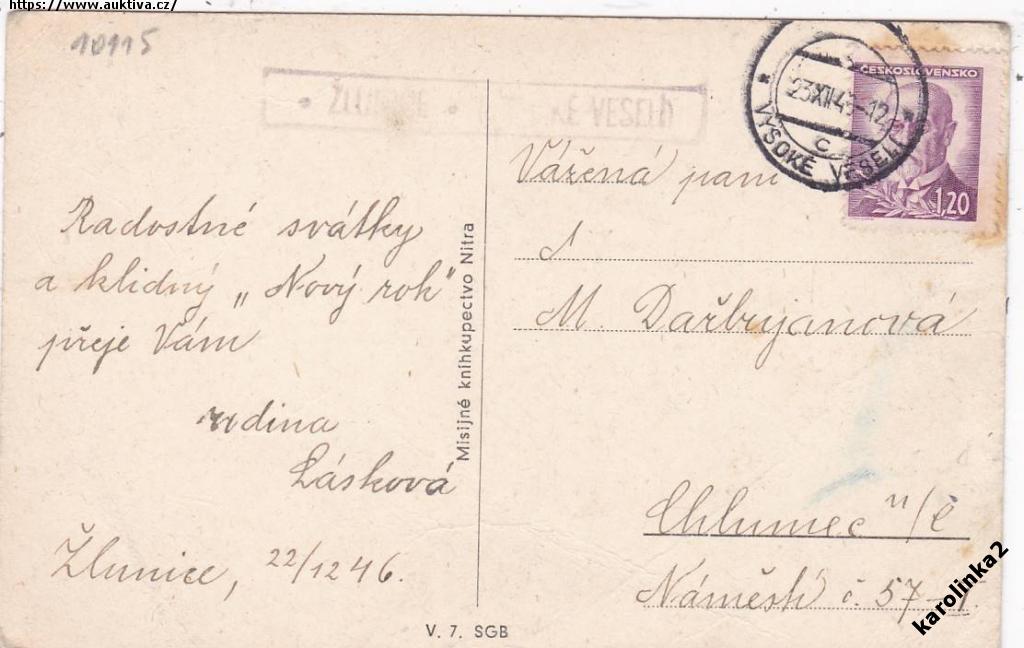 https://www.auktiva.cz/
10115
ŽLUNICE
KÉ VESELÍ
ČESKOSLOVENSKO
1,20
23XII46-12
VYSOKÉ VESELÍ
c
Radostné svátky
a klidný „Nový rok"
přeje Vám
rodina
Lásková
Žlunice, 22/12 46.
Misijné kníhkupectvo Nitra
Vážená paní
M. Dařbujanová
Chlumec n/C
Náměstí č. 57-I.
V. 7. SGB
karolinka2